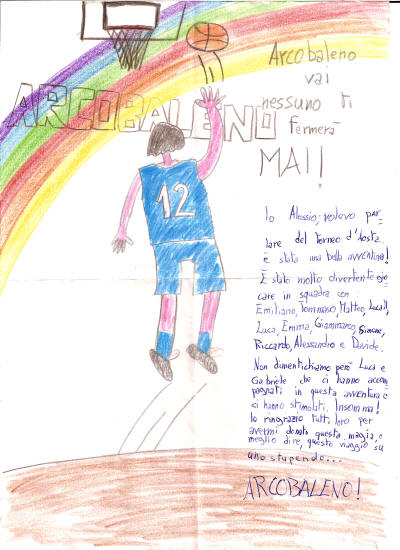 ARCOBALENO
Arcobaleno
vai
nessuno ti
fermerà
MAI!
12
Io Alessio, volevo par
lare del torneo d'Aosta..
è stata una bella avventura!
È stato molto divertente gio
care in squadra con:
Emiliano, Tommaso, Matteo,
Luca, Emma, Gianmarco, Simone,
Riccardo, Alessandro e Davide.
Non dimentichiamo però Luca e
Gabriele che ci hanno accom
pagnati in questa avventura e
ci hanno stimolati. Insomma!
Io ringrazio tutti loro per
avermi donato questa magia, o
meglio dire, questo viaggio su
uno stupendo...
ARCOBALENO!